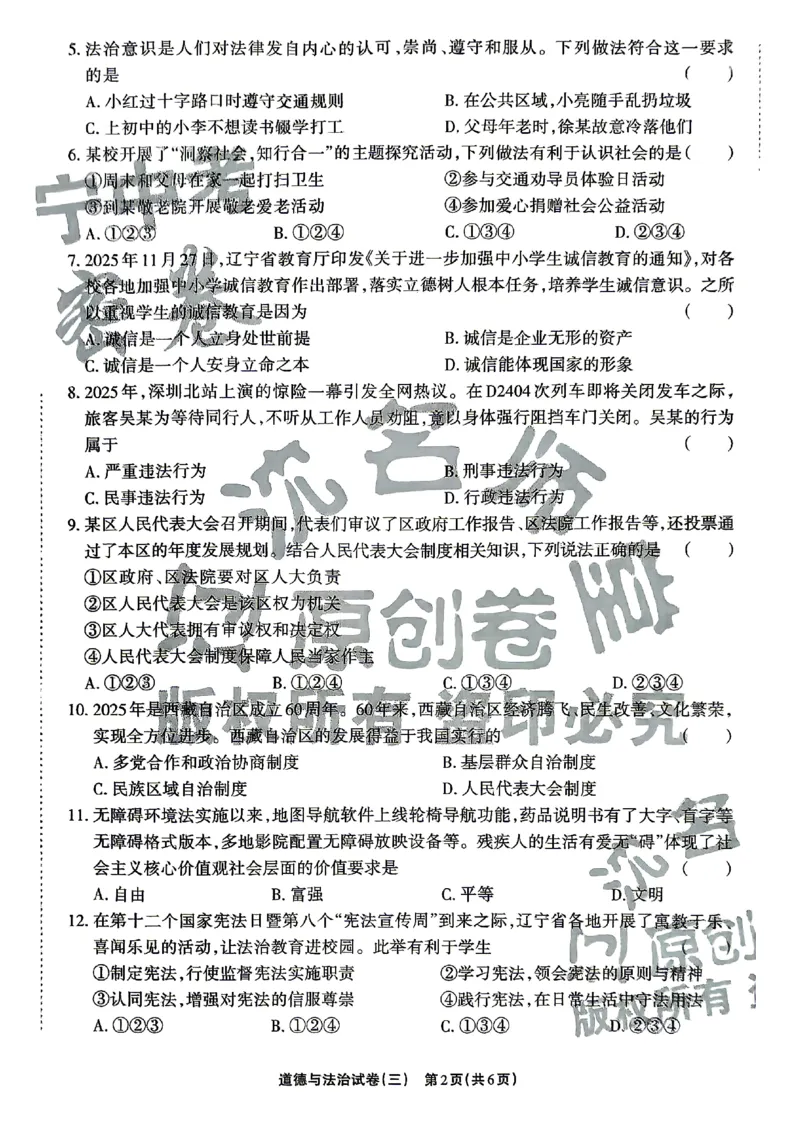 5. 法治意识是人们对法律发自内心的认可,崇尚、遵守和服从。下列做法符合这一要求
的是 ( )
A. 小红过十字路口时遵守交通规则 B. 在公共区域,小亮随手乱扔垃圾
C. 上初中的小李不想读书辍学打工 D. 父母年老时,徐某故意冷落他们
6. 某校开展了“洞察社会,知行合一”的主题探究活动,下列做法有利于认识社会的是( )
①周末和父母在家一起打扫卫生 ②参与交通劝导员体验日活动
③到某敬老院开展敬老爱老活动 ④参加爱心捐赠社会公益活动
A. ①②③ B. ①②④ C. ①③④ D. ②③④
7. 2025年11月27日,辽宁省教育厅印发《关于进一步加强中小学生诚信教育的通知》,对各
校各地加强中小学诚信教育作出部署,落实立德树人根本任务,培养学生诚信意识。之所
以重视学生的诚信教育是因为 ( )
A. 诚信是一个人立身处世前提 B. 诚信是企业无形的资产
C. 诚信是一个人安身立命之本 D. 诚信能体现国家的形象
8. 2025年,深圳北站上演的惊险一幕引发全网热议。在D2404次列车即将关闭发车之际,
旅客吴某为等待同行人,不听从工作人员劝阻,竟以身体强行阻挡车门关闭。吴某的行为
属于 ( )
A. 严重违法行为 B. 刑事违法行为
C. 民事违法行为 D. 行政违法行为
9. 某区人民代表大会召开期间,代表们审议了区政府工作报告、区法院工作报告等,还投票通
过了本区的年度发展规划。结合人民代表大会制度相关知识,下列说法正确的是 ( )
①区政府、区法院要对区人大负责
②区人民代表大会是该区权力机关
③区人大代表拥有审议权和决定权
④人民代表大会制度保障人民当家作主
A. ①②③ B. ①②④ C. ①③④ D. ②③④
10. 2025年是西藏自治区成立60周年。60年来,西藏自治区经济腾飞、民生改善、文化繁荣,
实现全方位进步。西藏自治区的发展得益于我国实行的 ( )
A. 多党合作和政治协商制度 B. 基层群众自治制度
C. 民族区域自治制度 D. 人民代表大会制度
11. 无障碍环境法实施以来,地图导航软件上线轮椅导航功能,药品说明书有了大字、盲字等
无障碍格式版本,多地影院配置无障碍放映设备等。残疾人的生活有爱无“碍”体现了社
会主义核心价值观社会层面的价值要求是 ( )
A. 自由 B. 富强 C. 平等 D. 文明
12. 在第十二个国家宪法日暨第八个“宪法宣传周”到来之际,辽宁省各地开展了寓教于乐、
喜闻乐见的活动,让法治教育进校园。此举有利于学生 ( )
①制定宪法,行使监督宪法实施职责 ②学习宪法,领会宪法的原则与精神
③认同宪法,增强对宪法的信服尊崇 ④践行宪法,在日常生活中守法用法
A. ①②③ B. ①②④ C. ①③④ D. ②③④
道德与法治试卷(三) 第2页(共6页)
宁中考
密卷
沈名
原创卷
版权所有 盗印必究
沈名
原创
版权所有